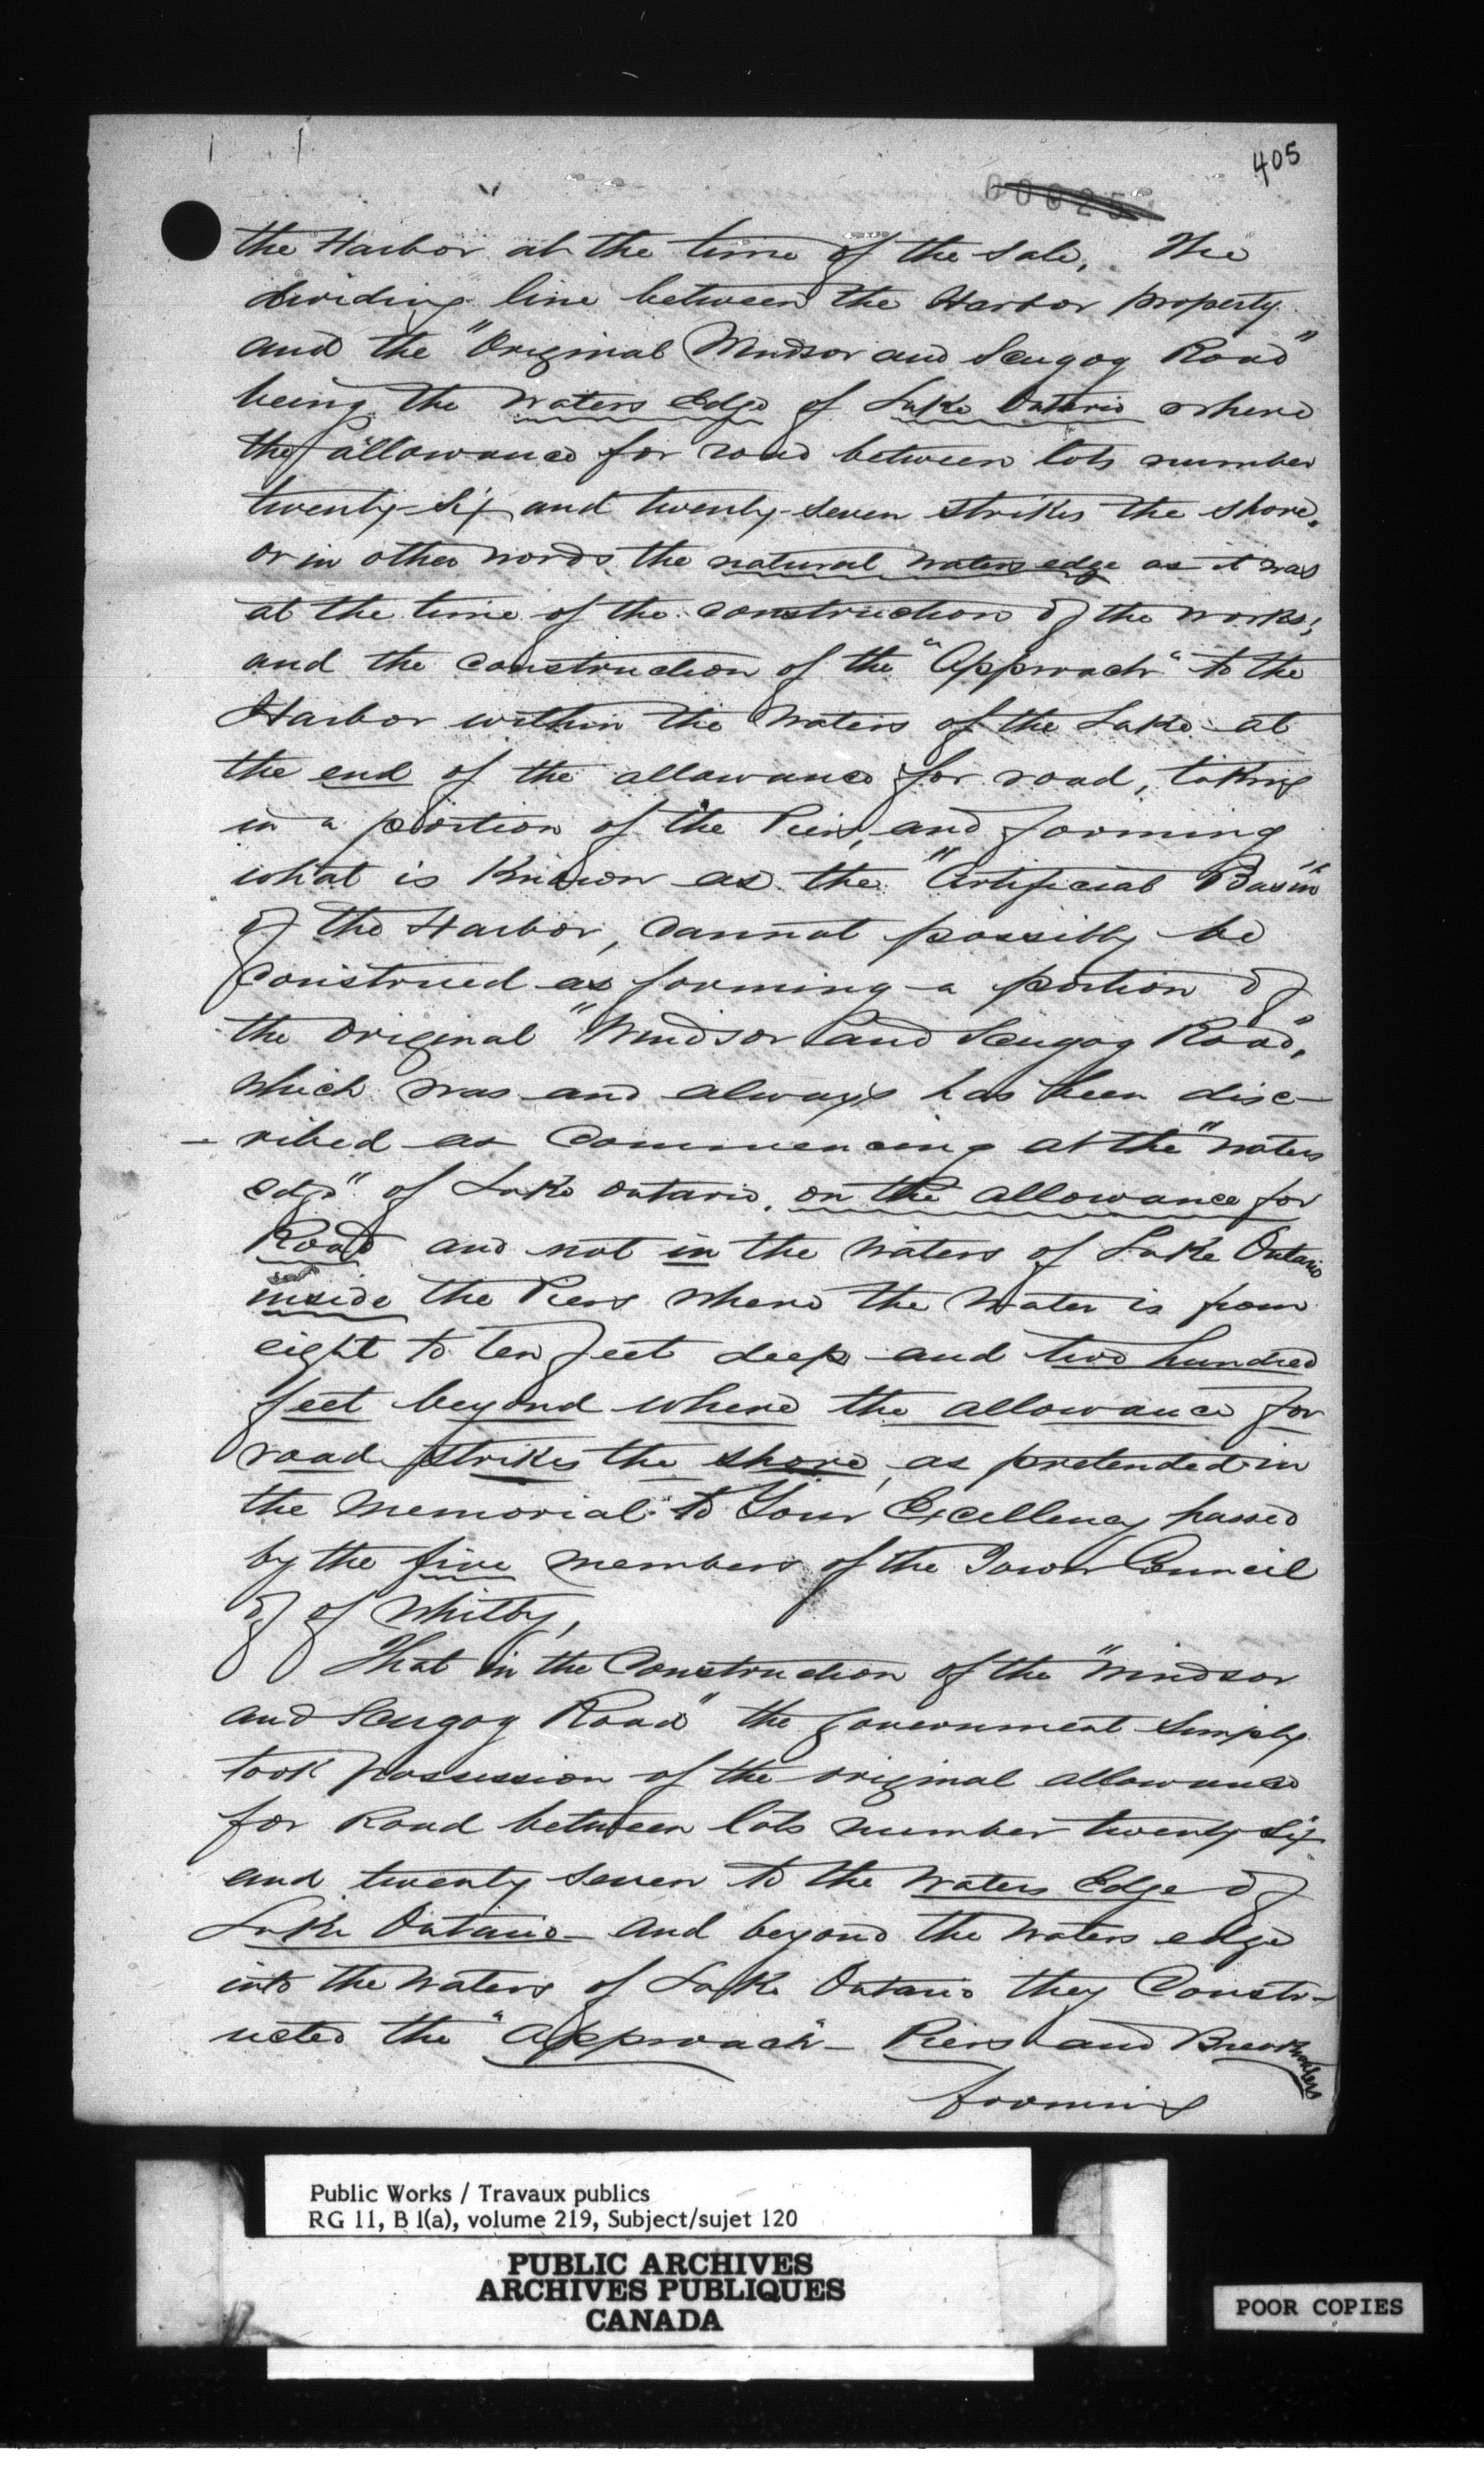 405
00025
the Harbor at the time of the sale. The
dividing line between the Harbor property
and the "Original Windsor and Scugog Road"
being the waters Edge of Lake Ontario where
the allowance for road between lots number
twenty-six and twenty-seven strikes the shore,
or in other words the natural waters edge as it was
at the time of the construction of the works;
and the construction of the "Approach" to the
Harbor within the waters of the Lake at
the end of the allowance for road, taking
in a portion of the Piers, and forming
what is known as the "Artificial Basin"
of the Harbor, cannot possibly be
construed as forming a portion of
the original "Windsor and Scugog Road",
which was and always has been disc-
-ribed as Commencing at the "waters
edge" of Lake Ontario, on the allowance for
Road and not in the waters of Lake Ontario
inside the Piers where the water is from
eight to ten feet deep and two hundred
feet beyond where the allowance for
road strikes the shore, as pretended in
the Memorial to Your Excellency passed
by the five members of the Town Council
of of Whitby,
That in the Construction of the "Windsor
and Scugog Road" the government simply
took possession of the original allowance
for Road between lots number twenty six
and twenty seven to the waters Edge of
Lake Ontario - and beyond the waters edge
into the waters of Lake Ontario they Constr-
ucted the "Approach" - Piers and Breakwaters
forming
Public Works / Travaux publics
RG 11, B 1(a), volume 219, Subject/sujet 120
PUBLIC ARCHIVES
ARCHIVES PUBLIQUES
CANADA
POOR COPIES